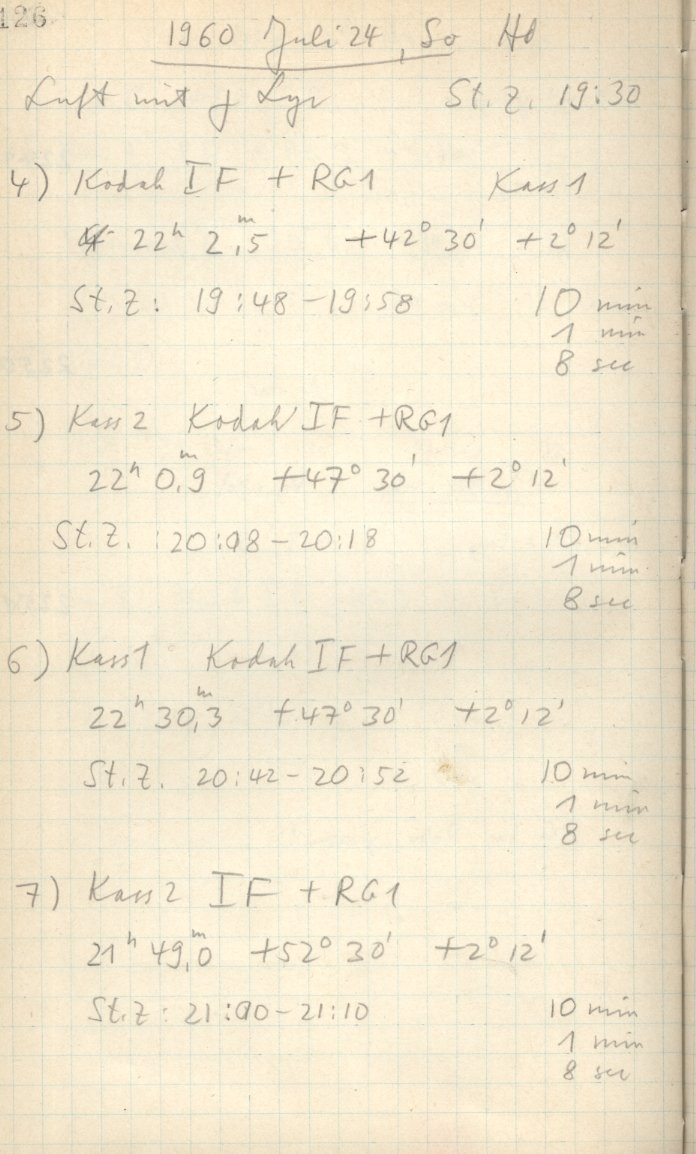 126
1960 Juli 24, So Hb
Luft mit γ Lyr St. Z. 19:30
4) Kodak IF + RG1 Kass 1
22h 2,5m +42° 30' +2° 12'
St. Z: 19:48 - 19:58 10 min
1 min
8 sec
5) Kass 2 Kodak IF + RG1
22h 0,9m +47° 30' +2° 12'
St. Z. : 20:08 - 20:18 10 min
1 min
8 sec
6) Kass 1 Kodak IF + RG1
22h 30,3m +47° 30' +2° 12'
St. Z. 20:42 - 20:52 10 min
1 min
8 sec
7) Kass 2 IF + RG1
21h 49,0m +52° 30' +2° 12'
St. Z: 21:00 - 21:10 10 min
1 min
8 sec